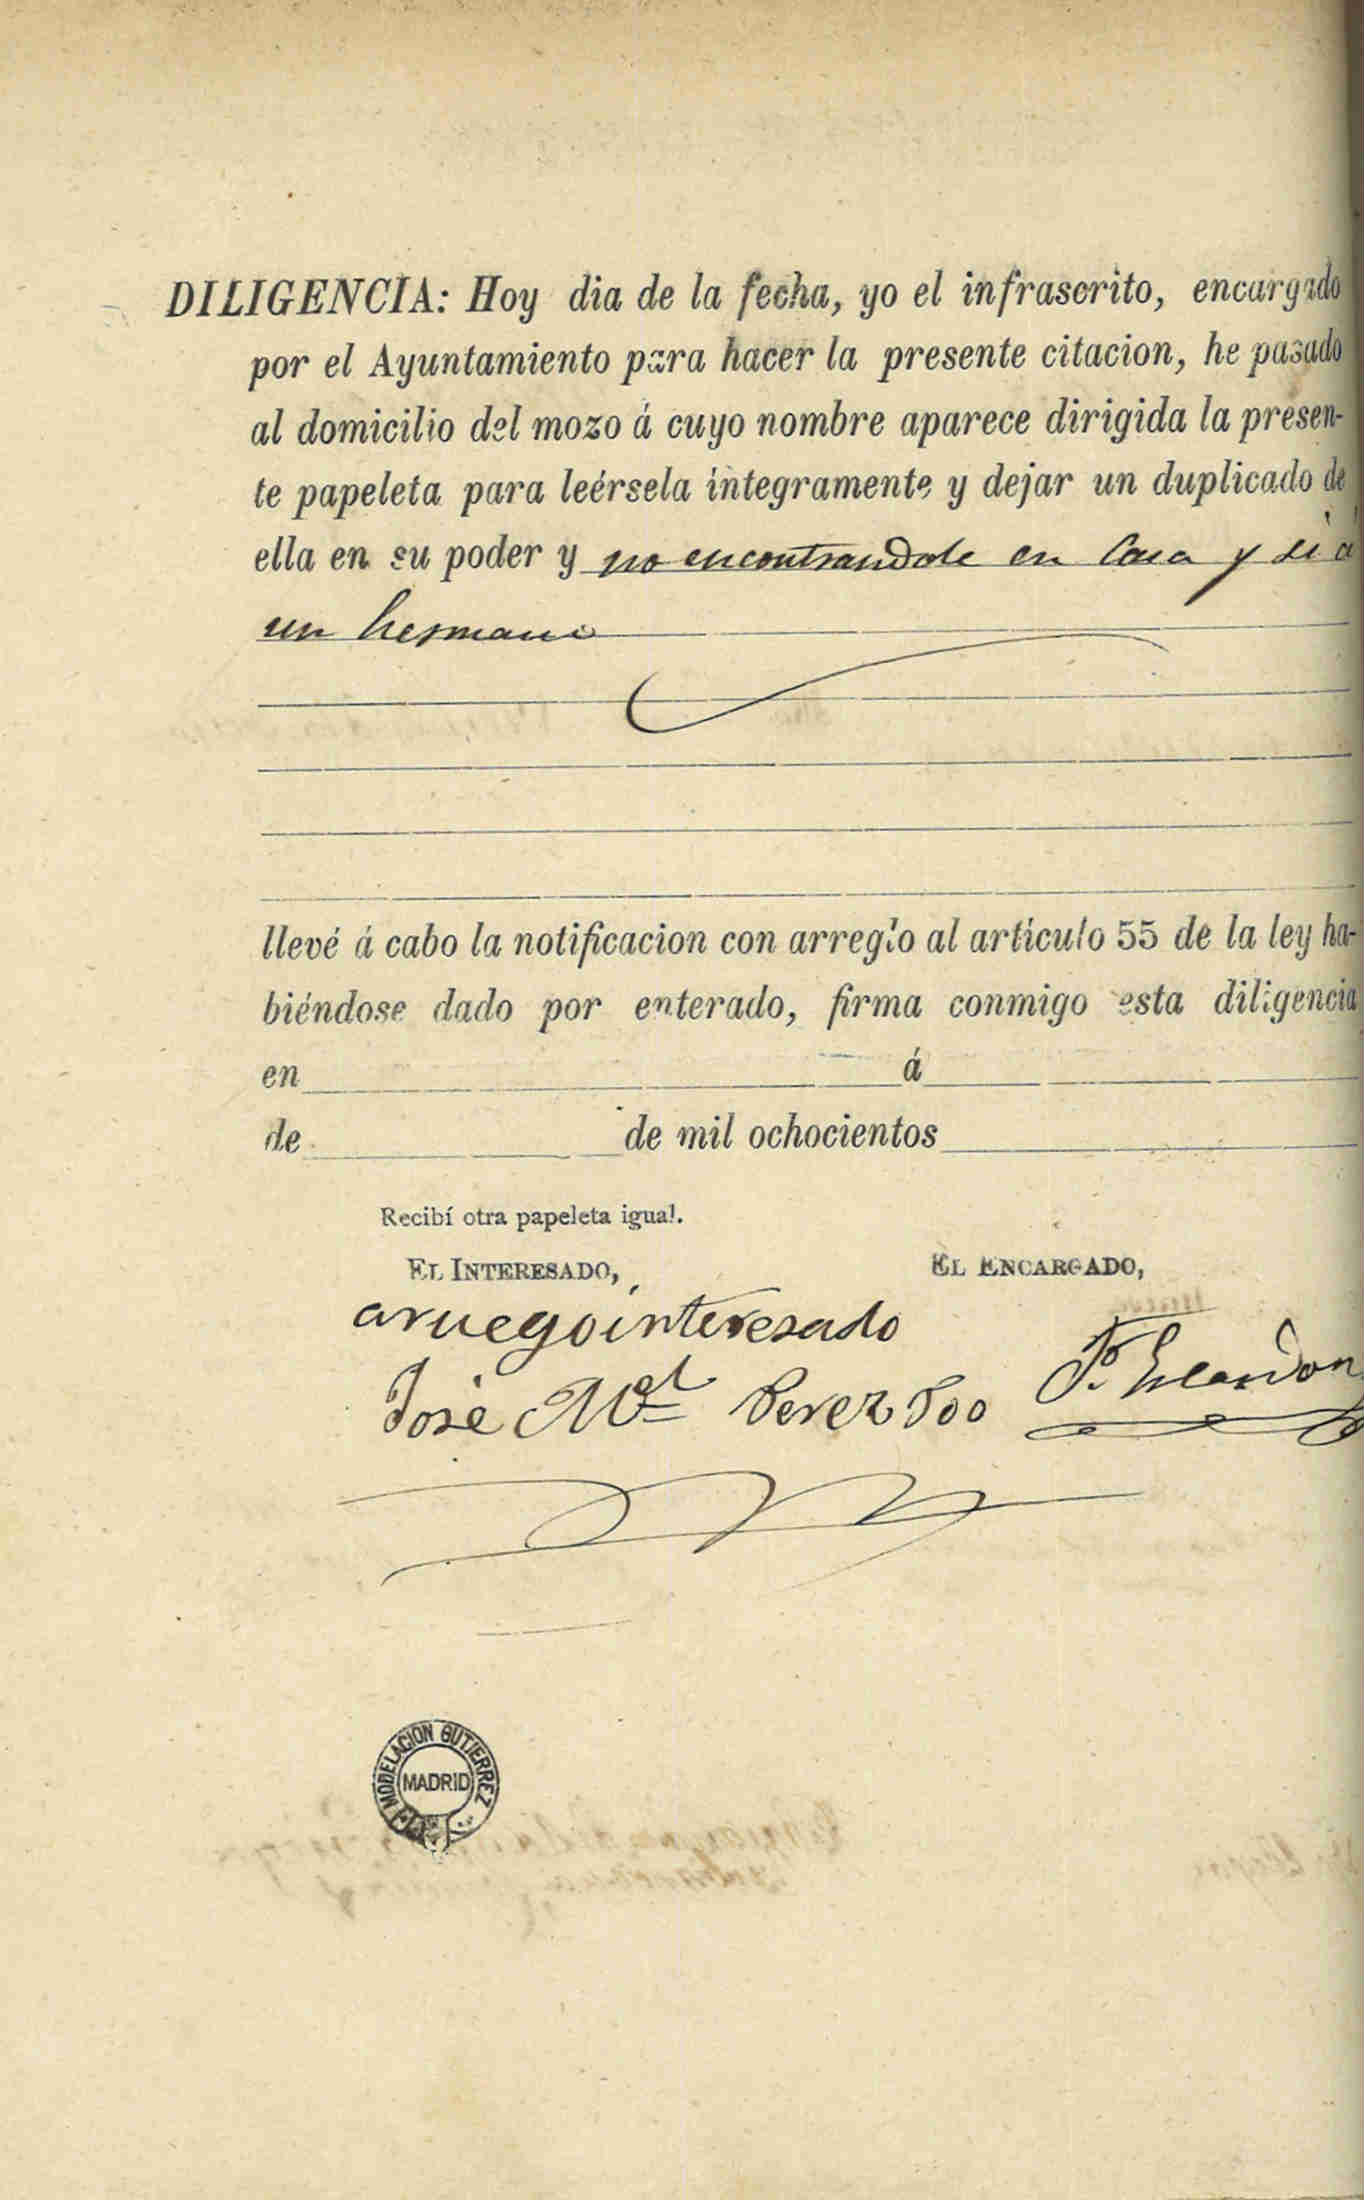 DILIGENCIA: Hoy dia de la fecha, yo el infrascrito, encargado
por el Ayuntamiento para hacer la presente citacion, he pasado
al domicilio del mozo á cuyo nombre aparece dirigida la presen-
te papeleta para leérsela integramente y dejar un duplicado de
ella en su poder y no encontrandole en casa y si á
un hermano
llevé á cabo la notificacion con arreglo al artículo 55 de la ley ha-
biéndose dado por enterado, firma conmigo esta diligencia
en á
de de mil ochocientos
Recibí otra papeleta igual.
EL INTERESADO, EL ENCARGADO,
aruegointeresado
José Mª Perez Poo P. Escandon
MODELACION GUTIERREZ
MADRID